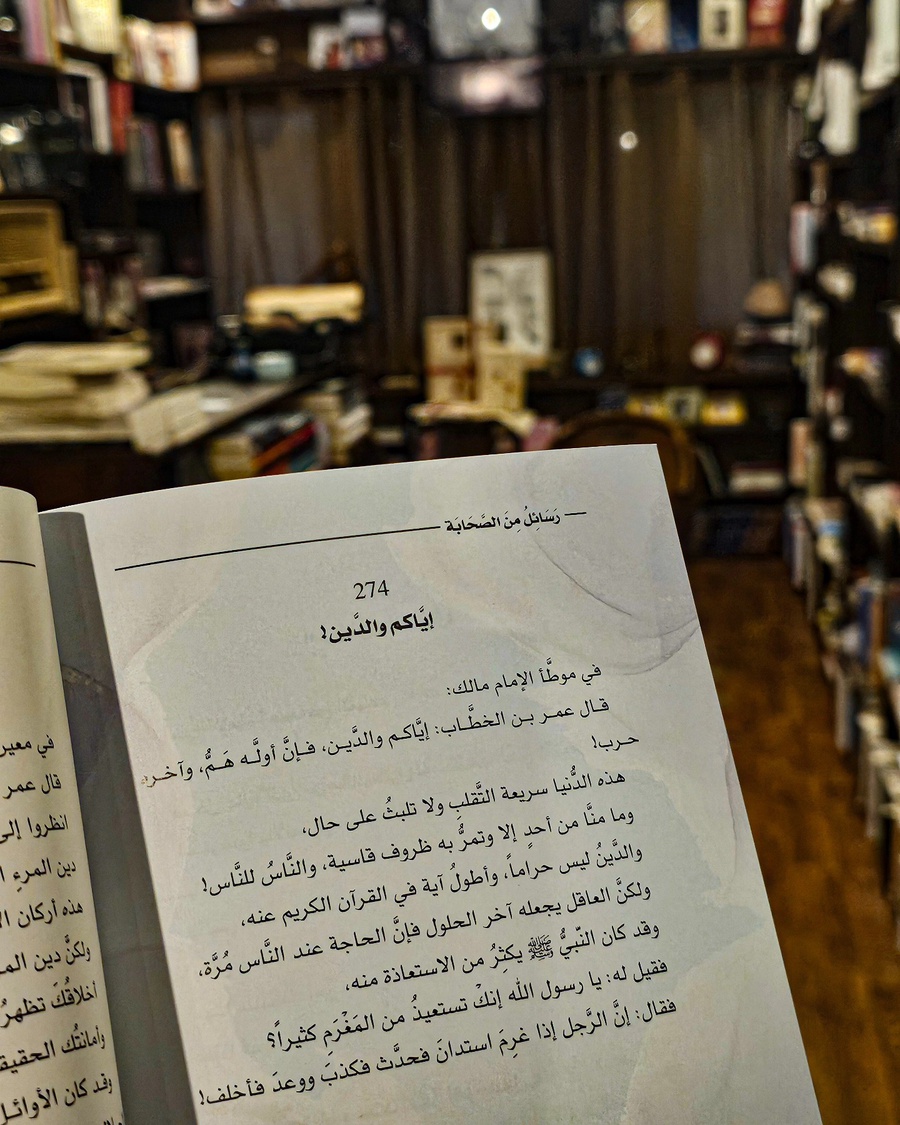 رَسَائِلُ مِنَ الصَّحَابَة
274
إيَّاكم والدَّين!
في موطَّأ الإمام مالك:
قـال عمـر بـن الخطَّـاب: إيَّاكـم والدَّيـن، فـإنَّ أولَّـه هَـمٌّ، وآخـره
حـرب!
هذه الدُّنيا سريعة التَّقلبِ ولا تلبثُ على حال،
وما منَّا من أحدٍ إلا وتمرُّ به ظروف قاسية، والنَّاسُ للنَّاس!
والدَّينُ ليس حراماً، وأطولُ آية في القرآن الكريم عنه،
ولكنَّ العاقل يجعله آخر الحلول فإنَّ الحاجة عند النَّاس مُرَّة،
وقد كان النّبيُّ ﷺ يكثِرُ من الاستعاذة منه،
فقيل له: يا رسول الله إنكَ تستعيذُ من المَغْرَمِ كثيراً؟
فقال: إنَّ الرَّجل إذا غرِمَ استدانَ فحدَّث فكذبَ ووعدَ فأخلف!
في
قال عمر
انظروا إلى
دين المرءِ
هذه أركان
ولكنَّ دين
أخلاقُكَ تظهرُ
وأمانتُك
وقد كان